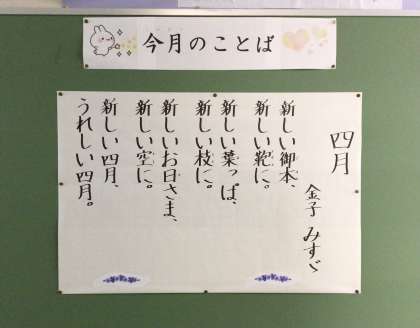 今月のことば
四月
金子 みすゞ
新しい御本、
新しい鞄に。
新しい葉っぱ、
新しい枝に。
新しいお日さま、
新しい空に。
新しい四月、
うれしい四月。